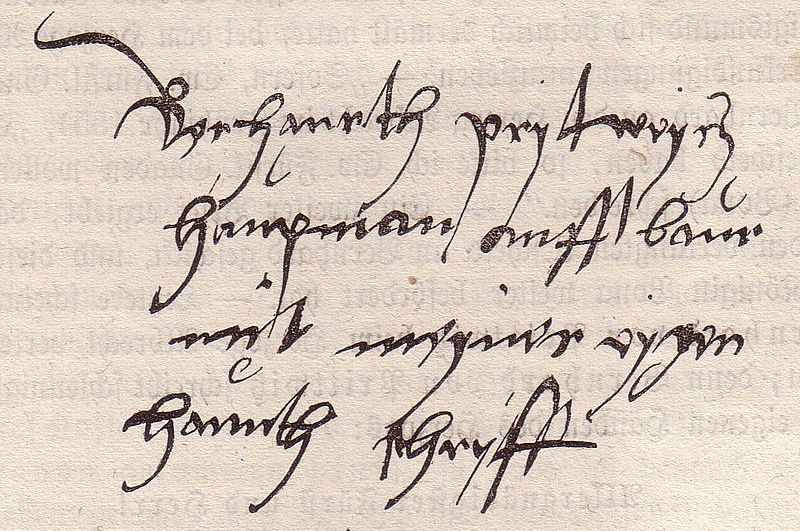 Bernhanrth prytwycz
haupman auff baur
mit meyner eygen
hannth schryfft